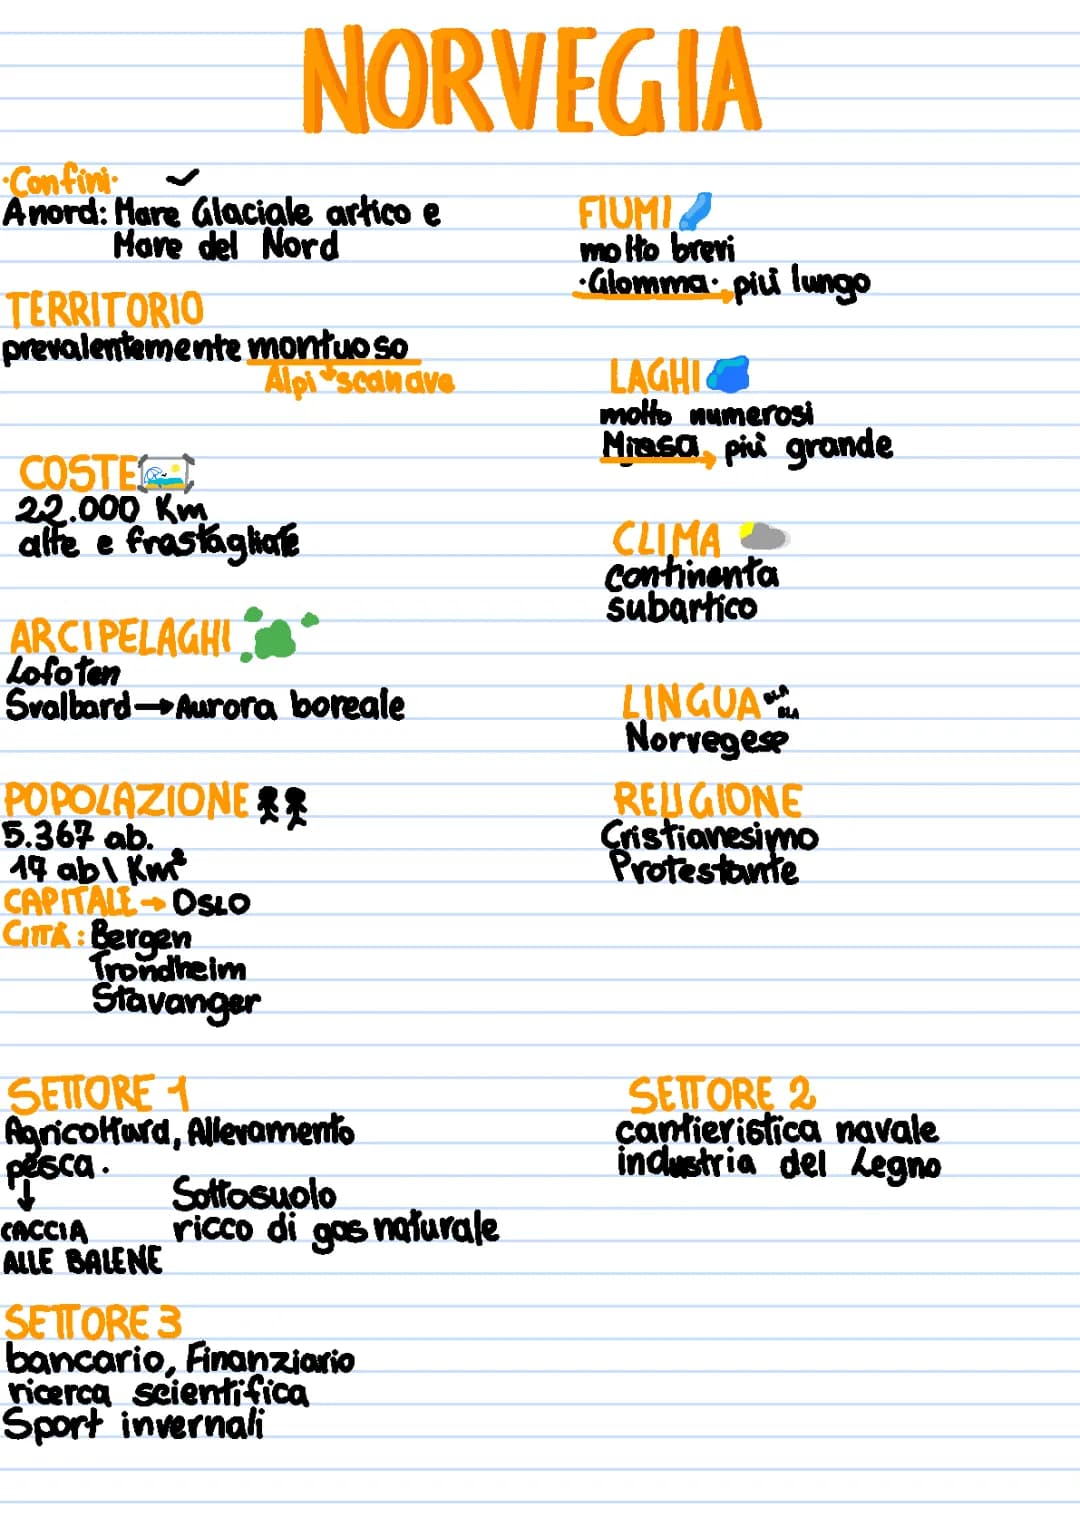 NORVEGIA
·Confini·
A nord: Mare Glaciale artico e
Mare del Nord
TERRITORIO
prevalentemente montuoso
Alpi scanave
COSTE
22.000 Km
alte e frastagliate
ARCIPELAGHI
Lofoten
Svalbard→Aurora boreale
POPOLAZIONE
5.367 ab.
17 ab\Km²
CAPITALE→OSLO
CITTÀ: Bergen
Trondheim
Stavanger
FIUMI
molto brevi
·Glomma· più lungo
LAGHI
molto numerosi
Mjøsa più grande
CLIMA
continenta
subartico
LINGUA BLA
BLA
Norvegese
RELIGIONE
Cristianesimo
Protestante
SETTORE 1
Agricoltura, Allevamento
pesca.
↓
CACCIA
ALLE BALENE
Sottosuolo
ricco di gas naturale
SETTORE 2
cantieristica navale
industria del Legno
SETTORE 3
bancario, Finanziario
ricerca scientifica
Sport invernali